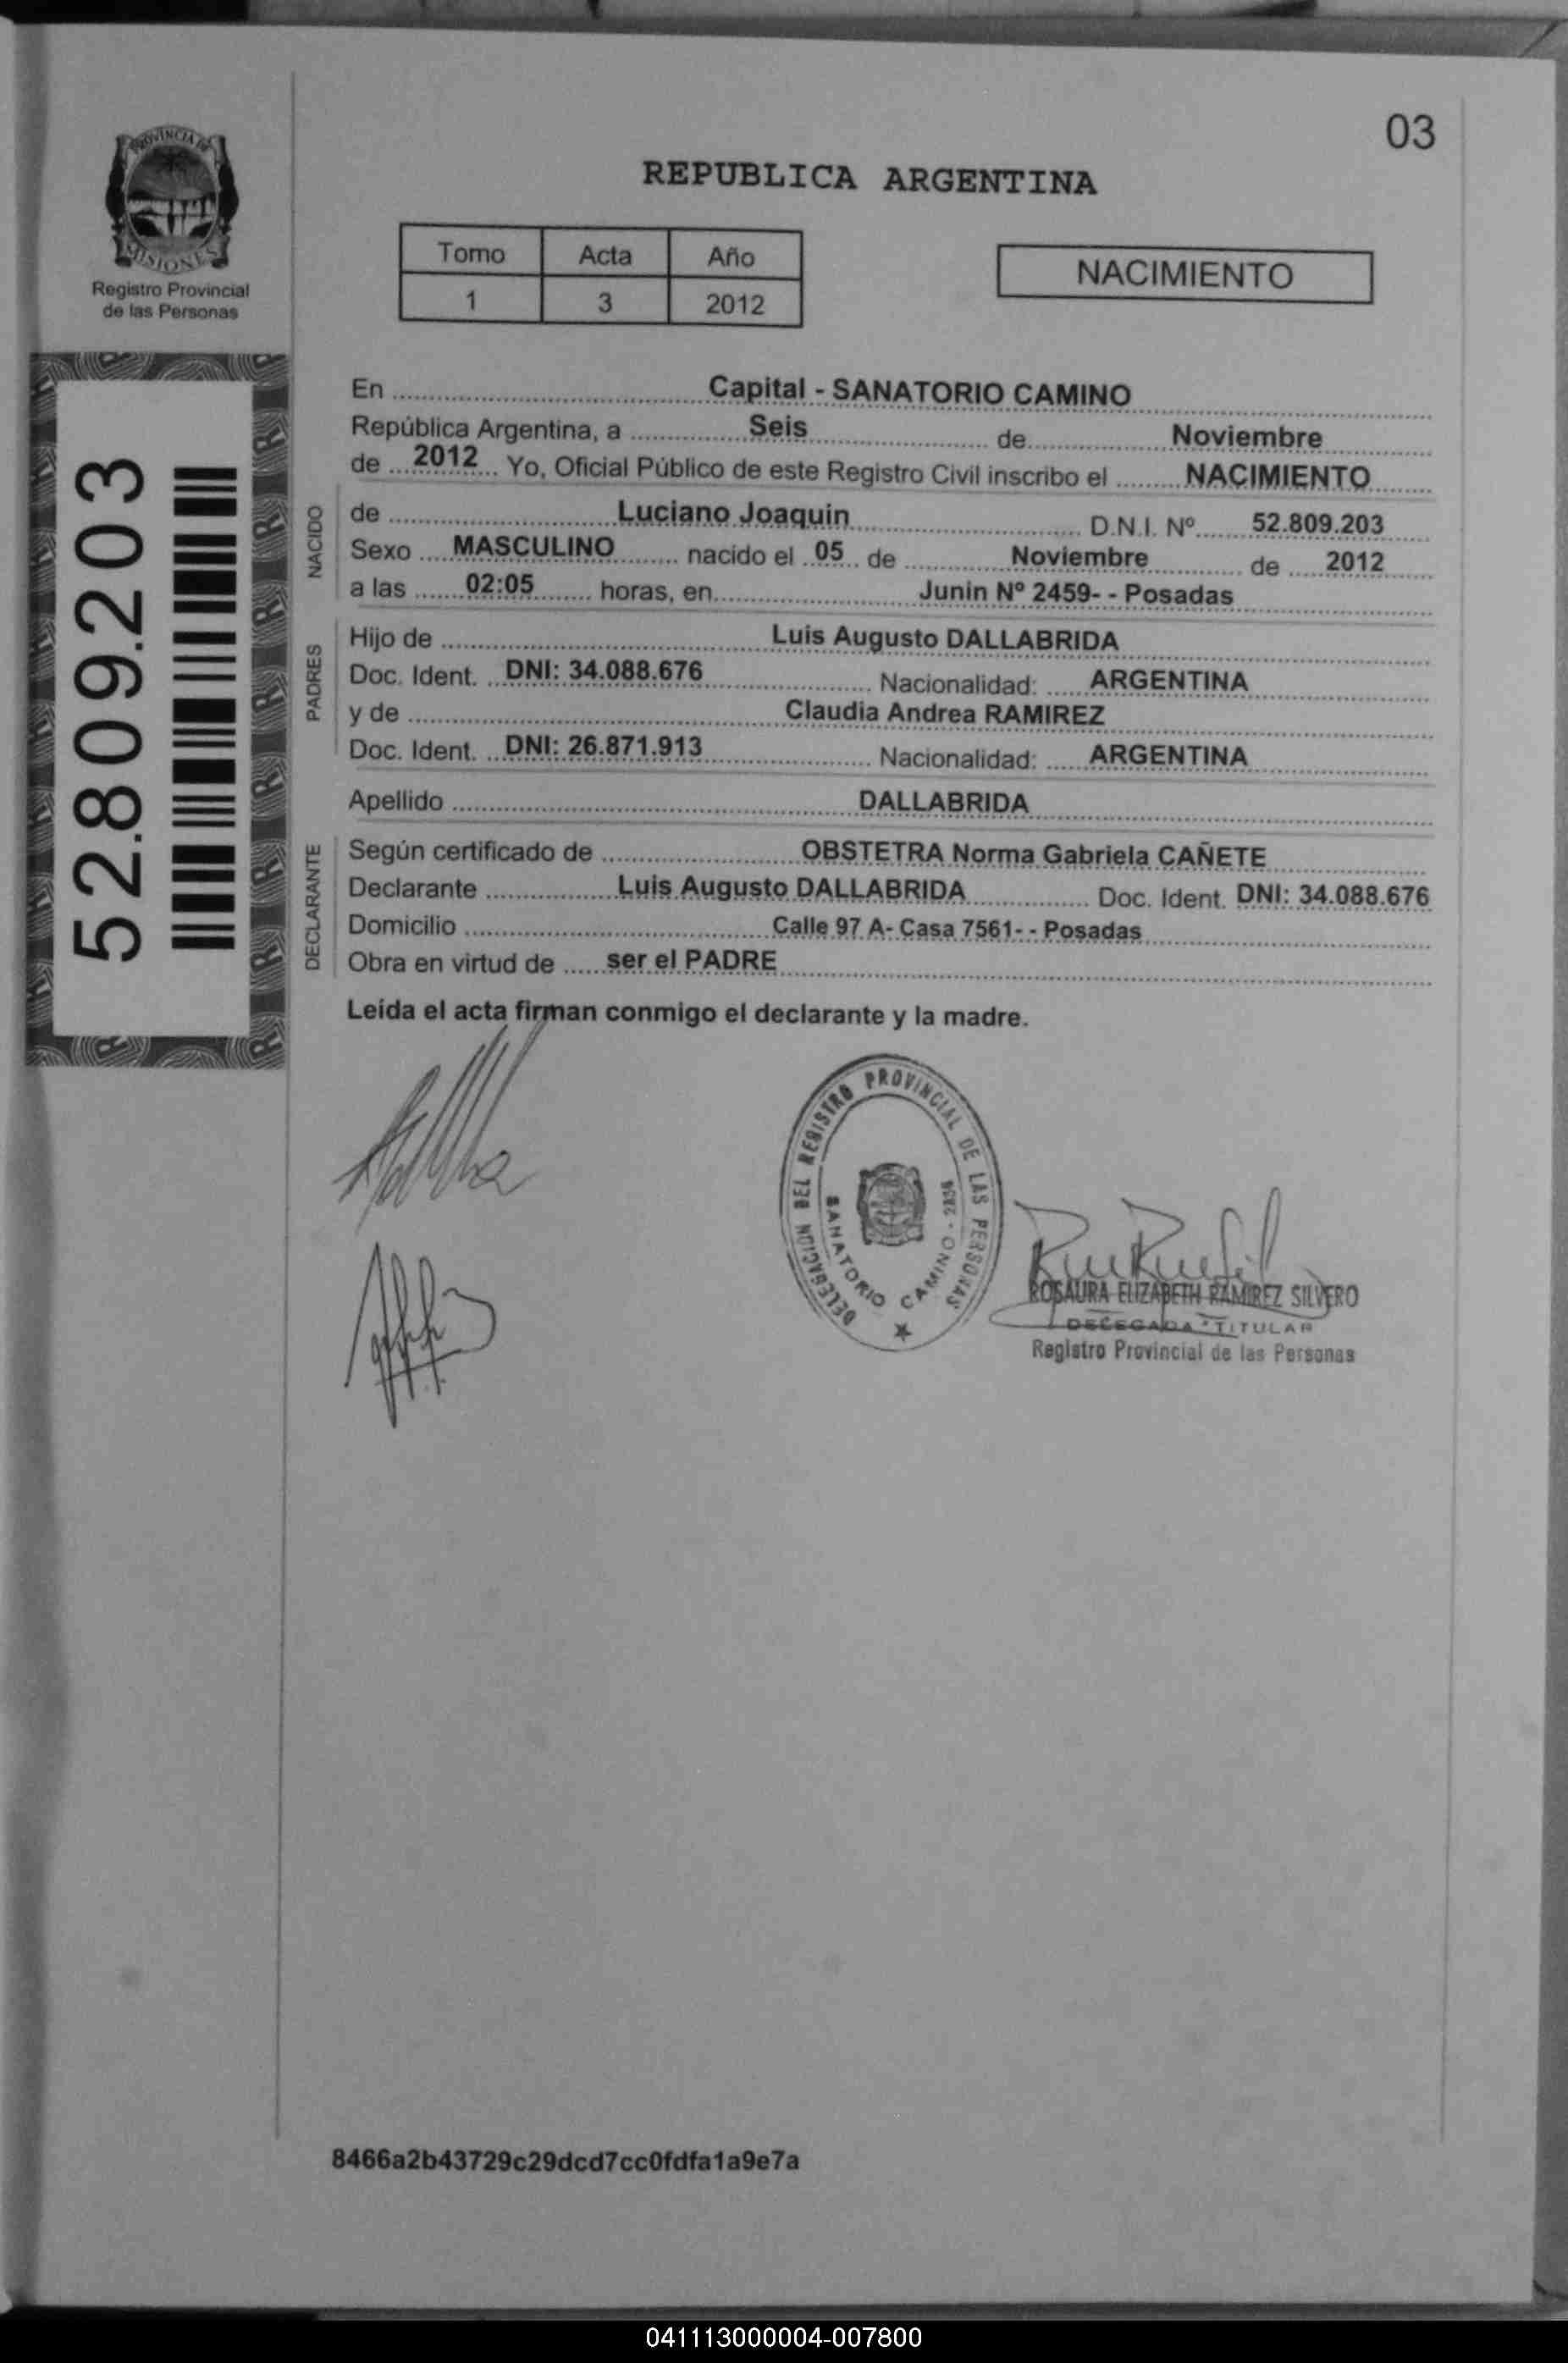 03
PROVINCIA DE
MISIONES
Registro Provincial
de las Personas
REPUBLICA ARGENTINA
Tomo Acta Año
1 3 2012
NACIMIENTO
52.809.203
En Capital - SANATORIO CAMINO
República Argentina, a Seis de Noviembre
de 2012 Yo, Oficial Público de este Registro Civil inscribo el NACIMIENTO
NACIDO
de Luciano Joaquin D.N.I. Nº 52.809.203
Sexo MASCULINO nacido el 05 de Noviembre de 2012
a las 02:05 horas, en Junin Nº 2459- - Posadas
PADRES
Hijo de Luis Augusto DALLABRIDA
Doc. Ident. DNI: 34.088.676 Nacionalidad: ARGENTINA
y de Claudia Andrea RAMIREZ
Doc. Ident. DNI: 26.871.913 Nacionalidad: ARGENTINA
Apellido DALLABRIDA
DECLARANTE
Según certificado de OBSTETRA Norma Gabriela CAÑETE
Declarante Luis Augusto DALLABRIDA Doc. Ident. DNI: 34.088.676
Domicilio Calle 97 A- Casa 7561- - Posadas
Obra en virtud de ser el PADRE
Leída el acta firman conmigo el declarante y la madre.
DELEGACION DEL REGISTRO PROVINCIAL DE LAS PERSONAS
SANATORIO CAMINO
ROSAURA ELIZABETH RAMIREZ SILVERO
DELEGADA TITULAR
Registro Provincial de las Personas
8466a2b43729c29dcd7cc0fdfa1a9e7a
041113000004-007800